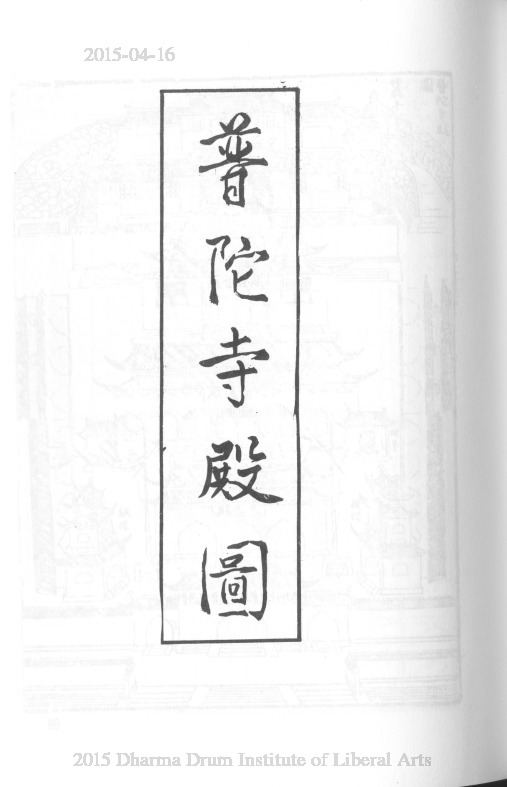 2015-04-16
普陀寺殿圖
2015 Dharma Drum Institute of Liberal Arts